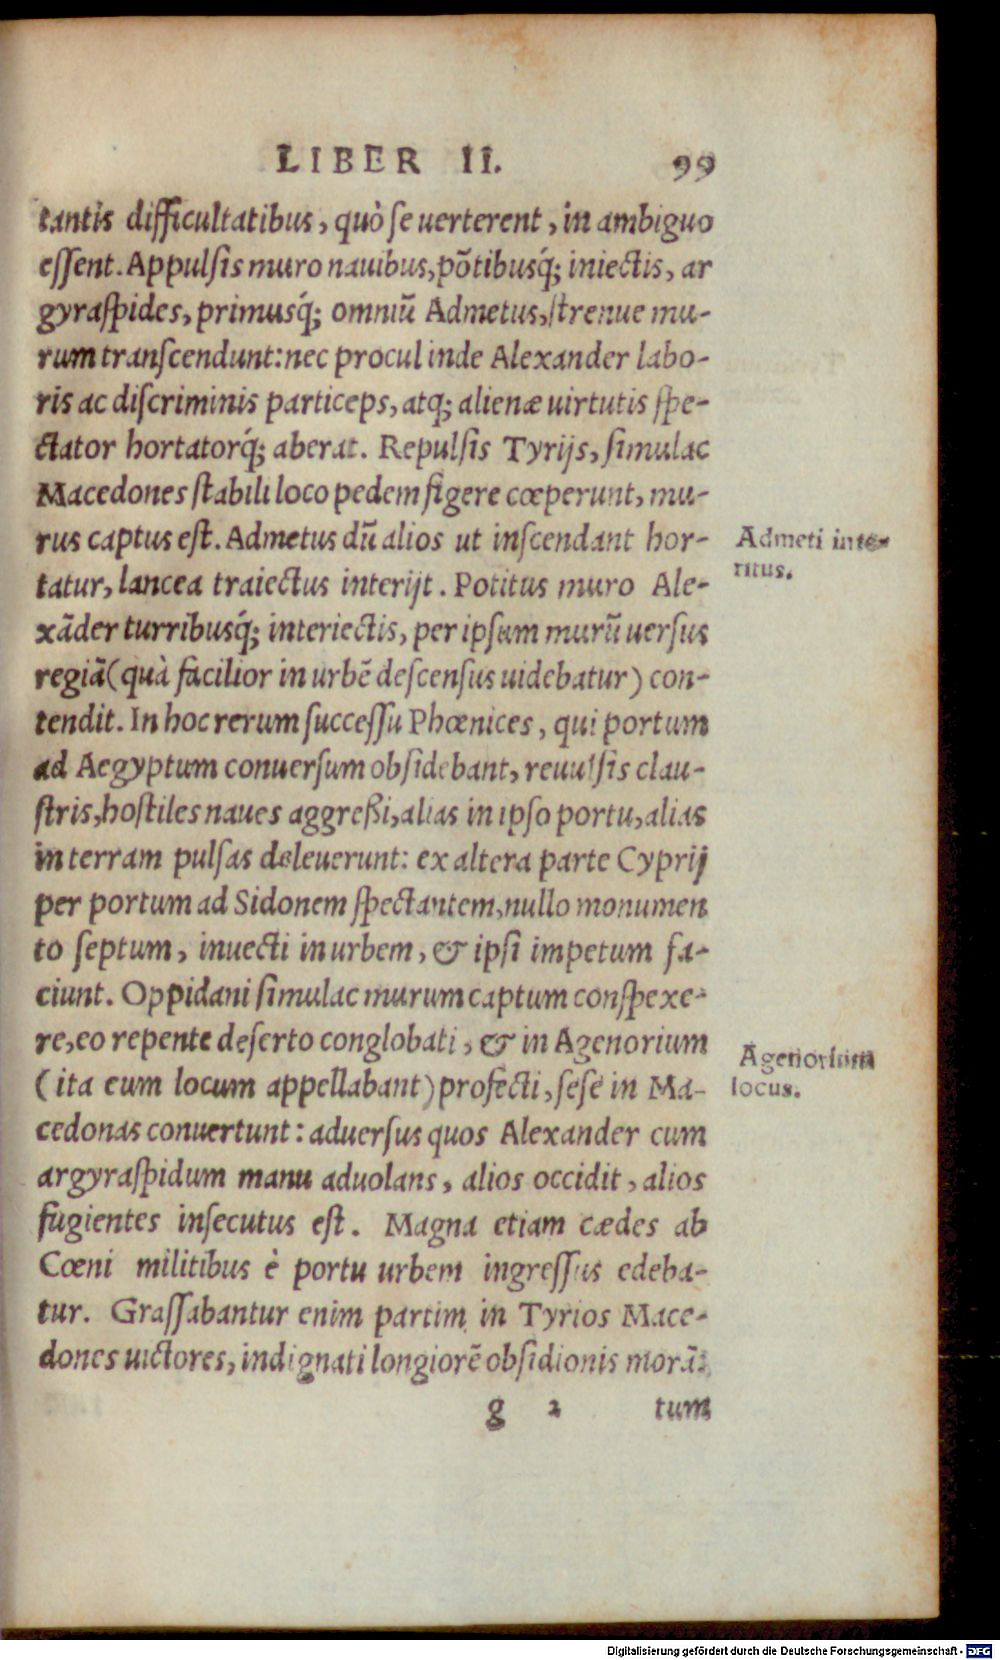 LIBER II. 99
tantis difficultatibus, quò se uerterent, in ambiguo
essent. Appulsis muro nauibus, põtibusq́; iniectis, ar
gyraspides, primusq́; omniũ Admetus, strenue mu-
rum transcendunt: nec procul inde Alexander labo-
ris ac discriminis particeps, atq; alienæ uirtutis spe-
ctator hortatorq́; aberat. Repulsis Tyrijs, simulac
Macedones stabili loco pedem figere cœperunt, mu-
rus captus est. Admetus dũ alios ut inscendant hor-
tatur, lancea traiectus interijt. Potitus muro Ale-
xãder turribusq́; interiectis, per ipsum murũ uersus
regiã (quà facilior in urbẽ descensus uidebatur) con-
tendit. In hoc rerum successu Phœnices, qui portum
ad Aegyptum conuersum obsidebant, reuulsis clau-
stris, hostiles naues aggreßi, alias in ipso portu, alias
in terram pulsas deleuerunt: ex altera parte Cyprij
per portum ad Sidonem spectantem, nullo monumen
to septum, inuecti in urbem, & ipsi impetum fa-
ciunt. Oppidani simulac murum captum conspexe-
re, eo repente deserto conglobati, & in Agenorium
(ita eum locum appellabant) profecti, sese in Ma-
cedonas conuertunt: aduersus quos Alexander cum
argyraspidum manu aduolans, alios occidit, alios
fugientes insecutus est. Magna etiam cædes ab
Cœni militibus è portu urbem ingressus edeba-
tur. Grassabantur enim partim in Tyrios Mace-
dones uictores, indignati longiorẽ obsidionis morã:
g 2 tum
Admeti inte-
ritus.
Agenorium
locus.
Digitalisierung gefördert durch die Deutsche Forschungsgemeinschaft - DFG